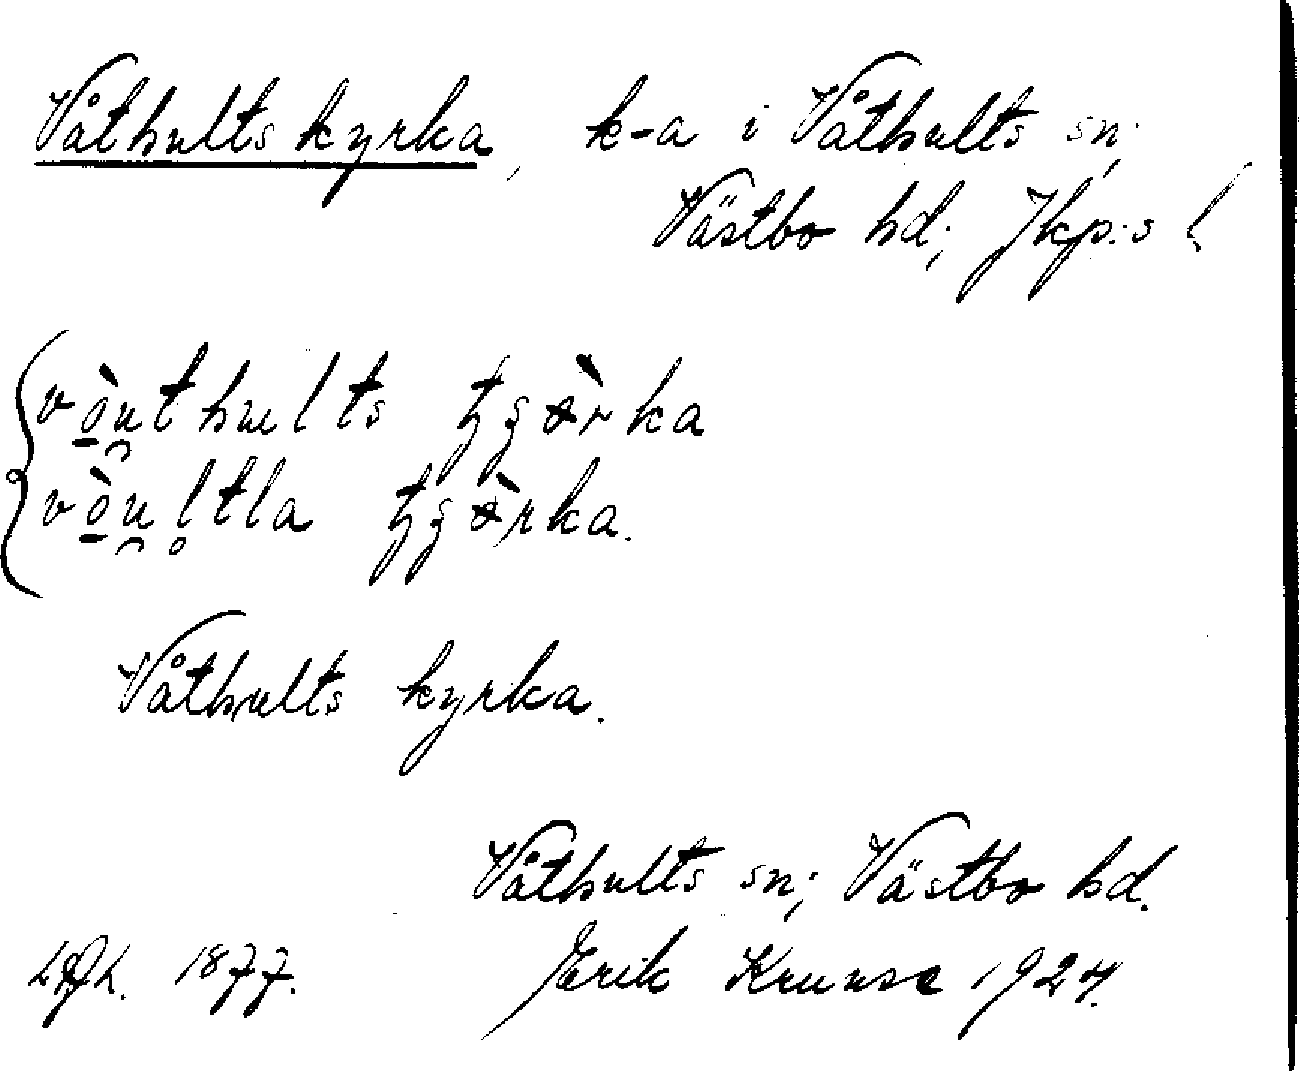 Våthults kyrka, k-a i Våthults sn;
Västbo hd; Jkp:s l
vò̱u̯thults tʂørka
vò̱u̯l̥tla tʂørka.
Våthults kyrka.
Våthults sn; Västbo hd.
1877. Erik Kruuse 1924.